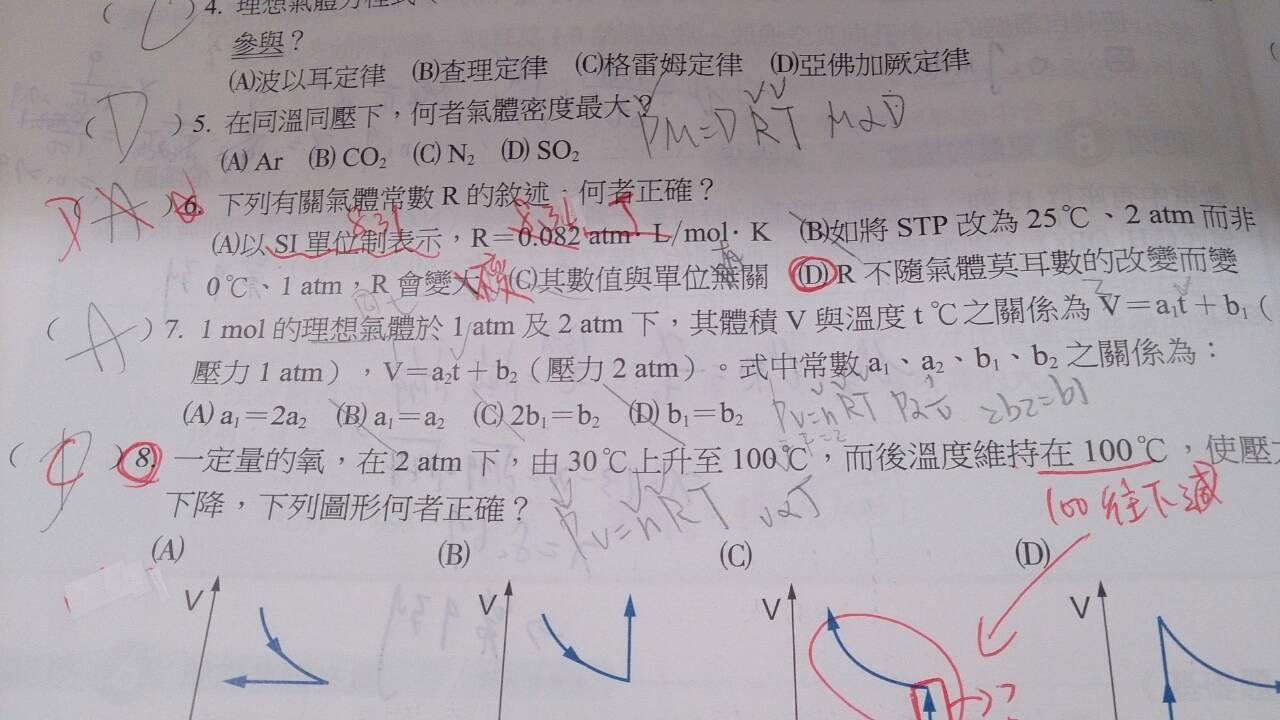 ( ) 4. 理想氣體方程式（
參與？
(A)波以耳定律 (B)查理定律 (C)格雷姆定律 (D)亞佛加厥定律
( D ) 5. 在同溫同壓下，何者氣體密度最大？ PM=DRT M∝D
(A) Ar (B) CO₂ (C) N₂ (D) SO₂
( D A ) 6. 下列有關氣體常數 R 的敘述，何者正確？
8.31 8.31 J
(A)以 SI 單位制表示，R＝0.082 atm．L/mol．K (B)如將 STP 改為 25℃、2 atm 而非
0℃、1 atm，R 會變大 (C)其數值與單位無關 (D) R 不隨氣體莫耳數的改變而變
( A ) 7. 1 mol 的理想氣體於 1 atm 及 2 atm 下，其體積 V 與溫度 t ℃之關係為 V＝a₁t＋b₁（
壓力 1 atm），V＝a₂t＋b₂（壓力 2 atm）。式中常數 a₁、a₂、b₁、b₂ 之關係為：
(A) a₁＝2a₂ (B) a₁＝a₂ (C) 2b₁＝b₂ (D) b₁＝b₂ PV=nRT 2b2=b1
( C ) 8. 一定量的氧，在 2 atm 下，由 30℃上升至 100℃，而後溫度維持在 100℃，使壓
下降，下列圖形何者正確？ PV=nRT V∝T
100 往下減
(A) (B) (C) (D)
V V V V